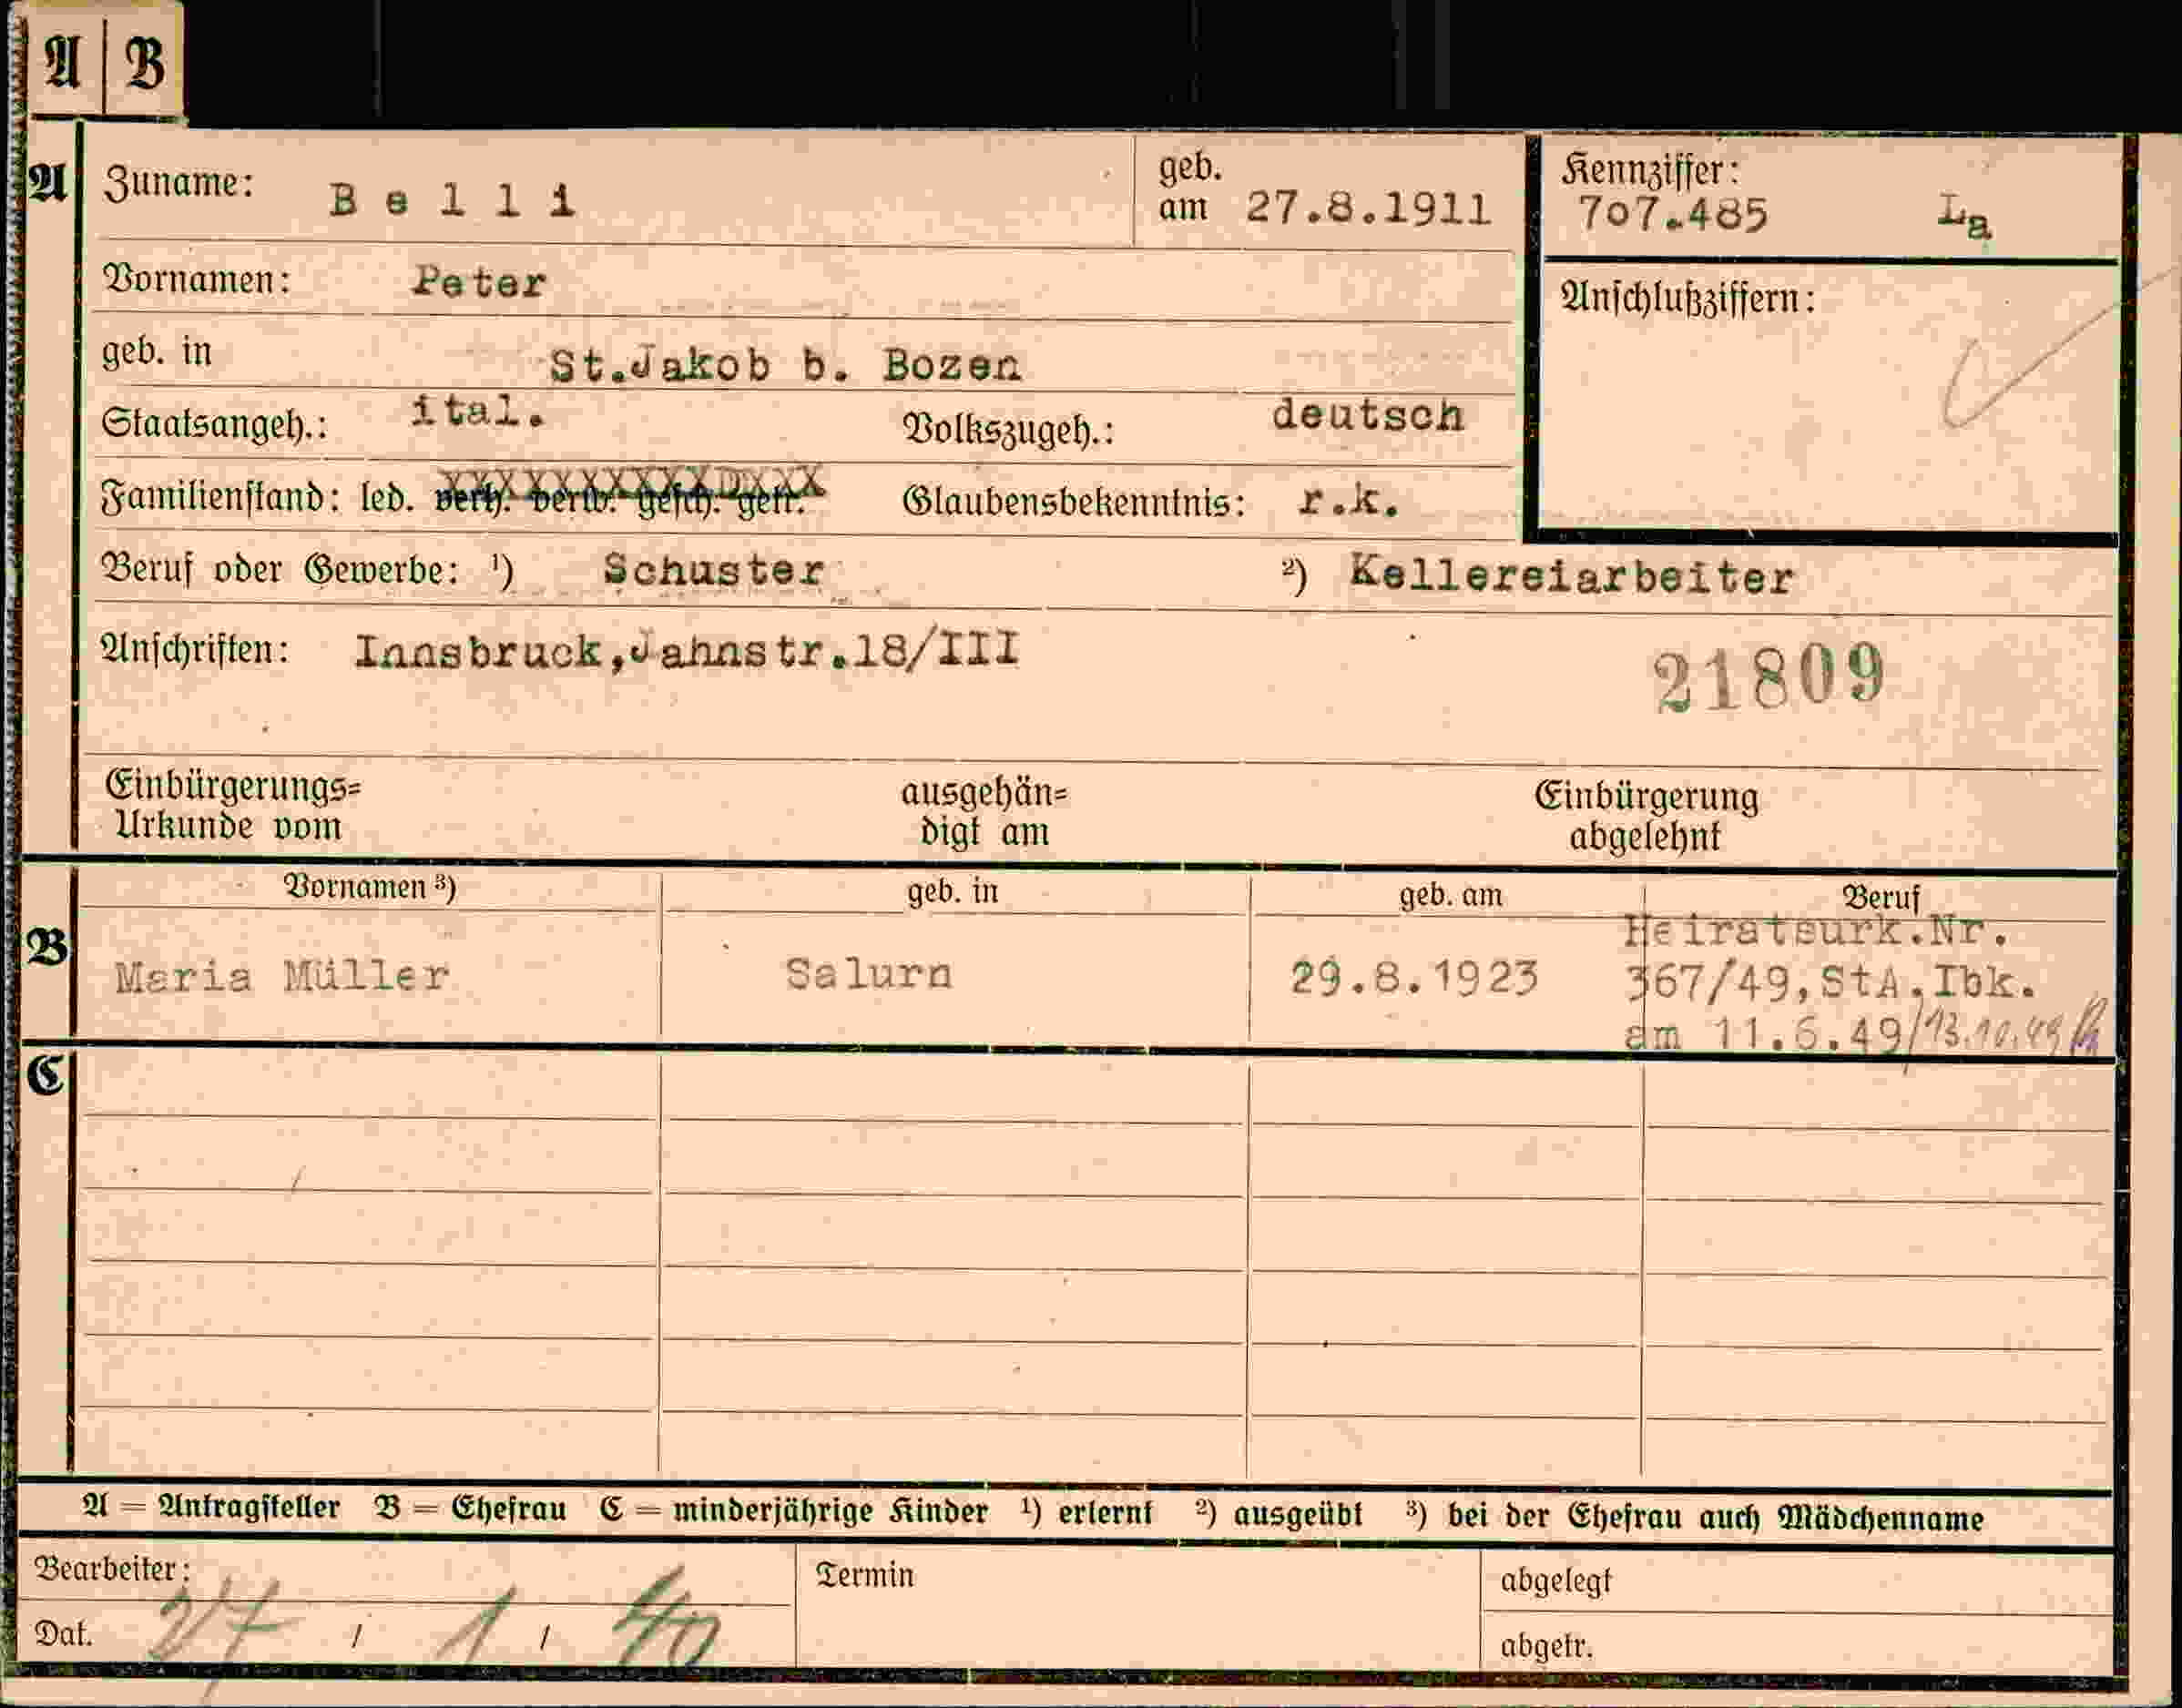 A B
A Zuname: Belli geb. am 27.8.1911 Kennziffer: 707.485 La
Vornamen: Peter Anschlußziffern:
geb. in St.Jakob b. Bozen
Staatsangeh.: ital. Volkszugeh.: deutsch
Familienstand: led. verh. verw. gesch. getr. Glaubensbekenntnis: r.k.
Beruf oder Gewerbe: ¹) Schuster ²) Kellereiarbeiter
Anschriften: Innsbruck,Jahnstr.18/III
21809
Einbürgerungs= ausgehän= Einbürgerung
Urkunde vom digt am abgelehnt
Vornamen ³) geb. in geb. am Beruf
Heiratsurk.Nr.
B Maria Müller Salurn 29.8.1923 367/49,StA.Ibk.
am 11.6.49/13.10.49
C
A = Antragsteller B = Ehefrau C = minderjährige Kinder ¹) erlernt ²) ausgeübt ³) bei der Ehefrau auch Mädchenname
Bearbeiter: Termin abgelegt
Dat. 27 / 1 / 40 abgetr.